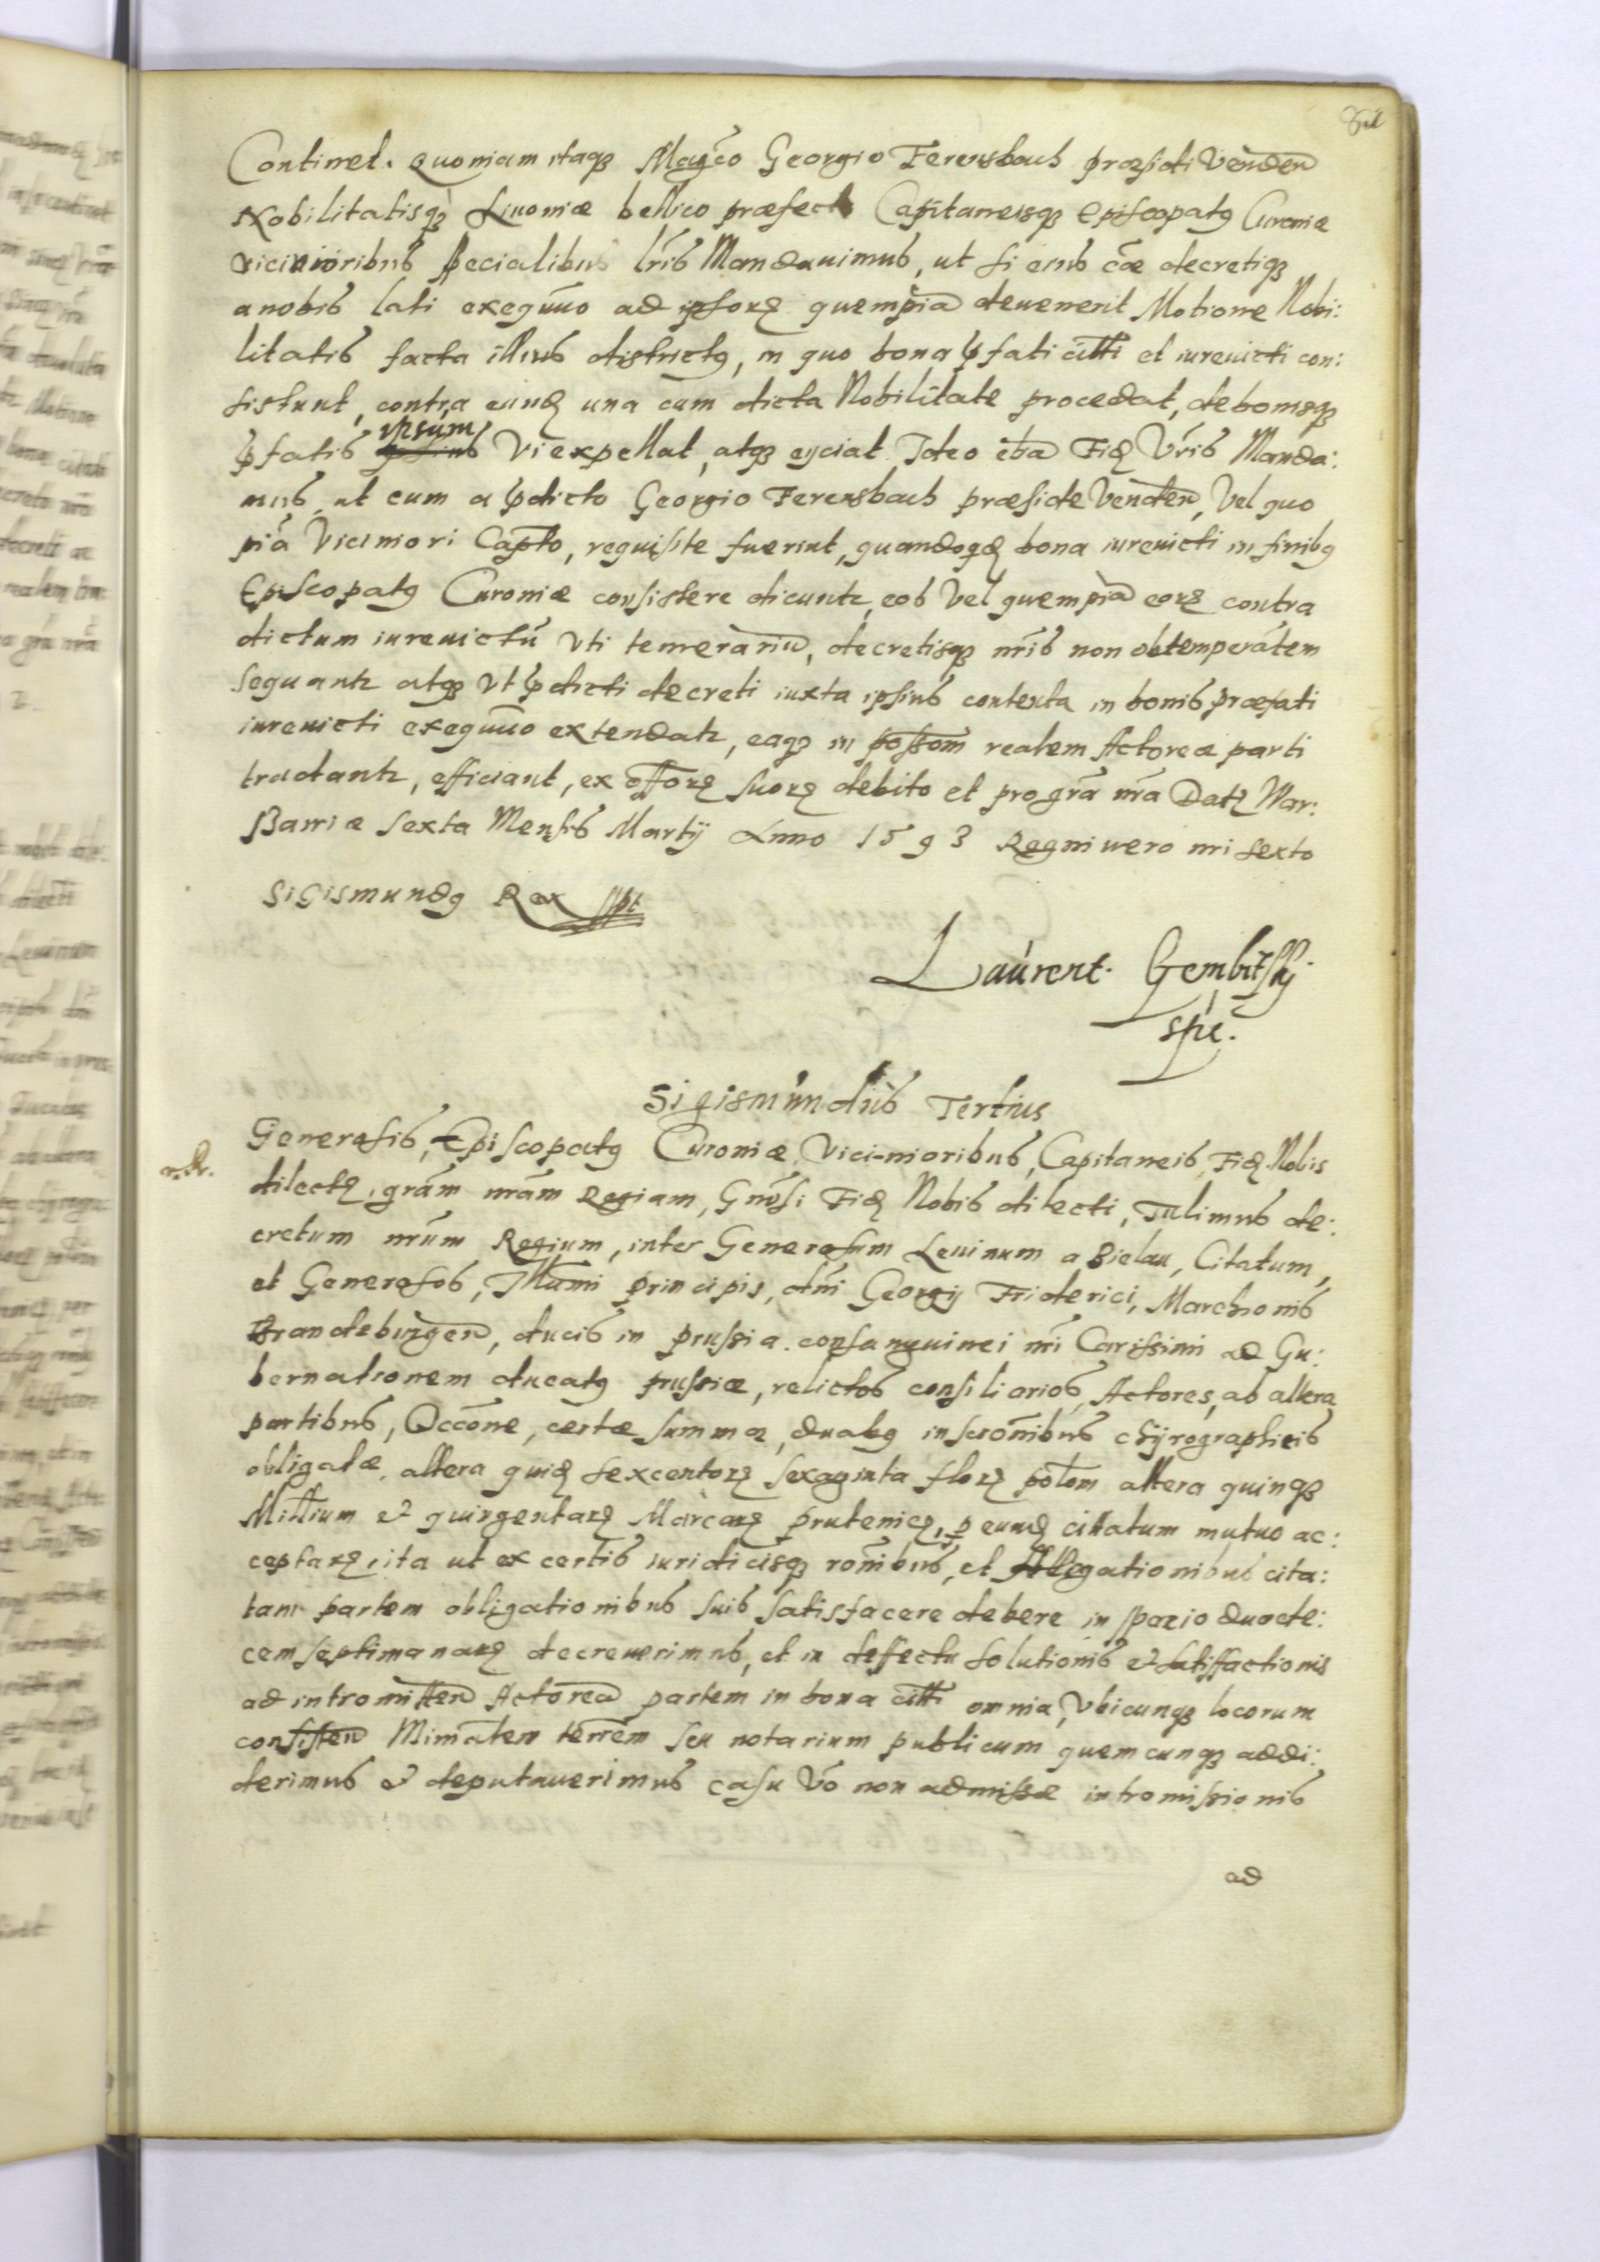 Continet. Quoniam itaqꝫ Magco Georgio Ferensbach præsidi Venden
Nobilitatisqꝫ Liuoniæ bellico præfecto Capitaneisqꝫ Episcopatꝰ Curoniæ
vicinioribus specialibus lris Mandauimus, ut si eius cæ decretiqꝫ
a nobis lati exequuo ad ipsorꝝ quempia deuenerit Motione Nobi:
litatis facta illius districtꝰ, in quo bona pfati citti et iureuicti con:
sistunt, contra eundꝫ una cum dicta Nobilitate procedat, de bonisqꝫ
pfatis ipsum Vi expellat, atqꝫ eyciat. Ideo eba Fid Vris Manda:
mus, ut cum a pdicto Georgio Ferensbach præside Venden, Vel quo
pia Viciniori Capto, requisite fuerint, quandoqd bona iureuicti in finibꝰ
Episcopatꝰ Curoniæ consistere dicuntr, eos Vel quempia eorꝝ contra
dictum iureuictu Vti temerariu, decretisqꝫ nris non obtemperatem
sequantr atqꝫ Vt pdicti decreti iuxta ipsius contenta in bonis præfati
iureuicti exequuo extendatr, eaqꝫ in possom realem Actoreæ parti
tradantr, efficiant, ex offorꝝ suorꝝ debito et pro gra nra Datꝫ War:
ssawiæ sexta Mensis Martij Anno 1593 Regni uero nri sexto
Sigismundꝰ Rex sspt
Laurent. Gembitsky
spc.
Sigismundus Tertius
Generosis, Episcopatꝰ Curoniæ, Vicinioribus, Capitaneis, Fid Nobis
dilectꝭ, gram nram Regiam, Gnosi Fid Nobis dilecti, Tulimus de:
cretum nrum Regium, inter Generosum Leuinum a Bielau, Citatum,
et Generosos, Illumi principis, dni Georgij Friderici, Marchionis
Brandeburgen, ducis in prussia. consanguinei nri Carissimi ad Gu:
bernationem ducatꝰ prussiæ, relictos consiliarios, Actores, ab altera
partibus, Occone, certæ summæ, duabꝰ inscronibus chyrographicis
obligatæ, altera quid sexcentorꝝ sexaginta florꝝ polom altera quinqꝫ
Millium et quingentarꝝ Marcarꝝ prutenicꝝ, p eund citatum mutuo ac:
ceptarꝝ, ita ut ex certis iuridicisqꝫ ronibus, et Allegationibus cita:
tam partem obligationibus suis satisfacere debere in spacio duode:
cem septimanarꝝ decreuerimus, et in deffectu solutionis et satisfactionis
ad intromitten Actorea partem in bona citti omnia, Vbicunqꝫ locorum
consisten Minraten terrem seu notarium publicum quemcunqꝫ addi:
derimus et deputauerimus casu Vo non admissæ intromissionis
ad